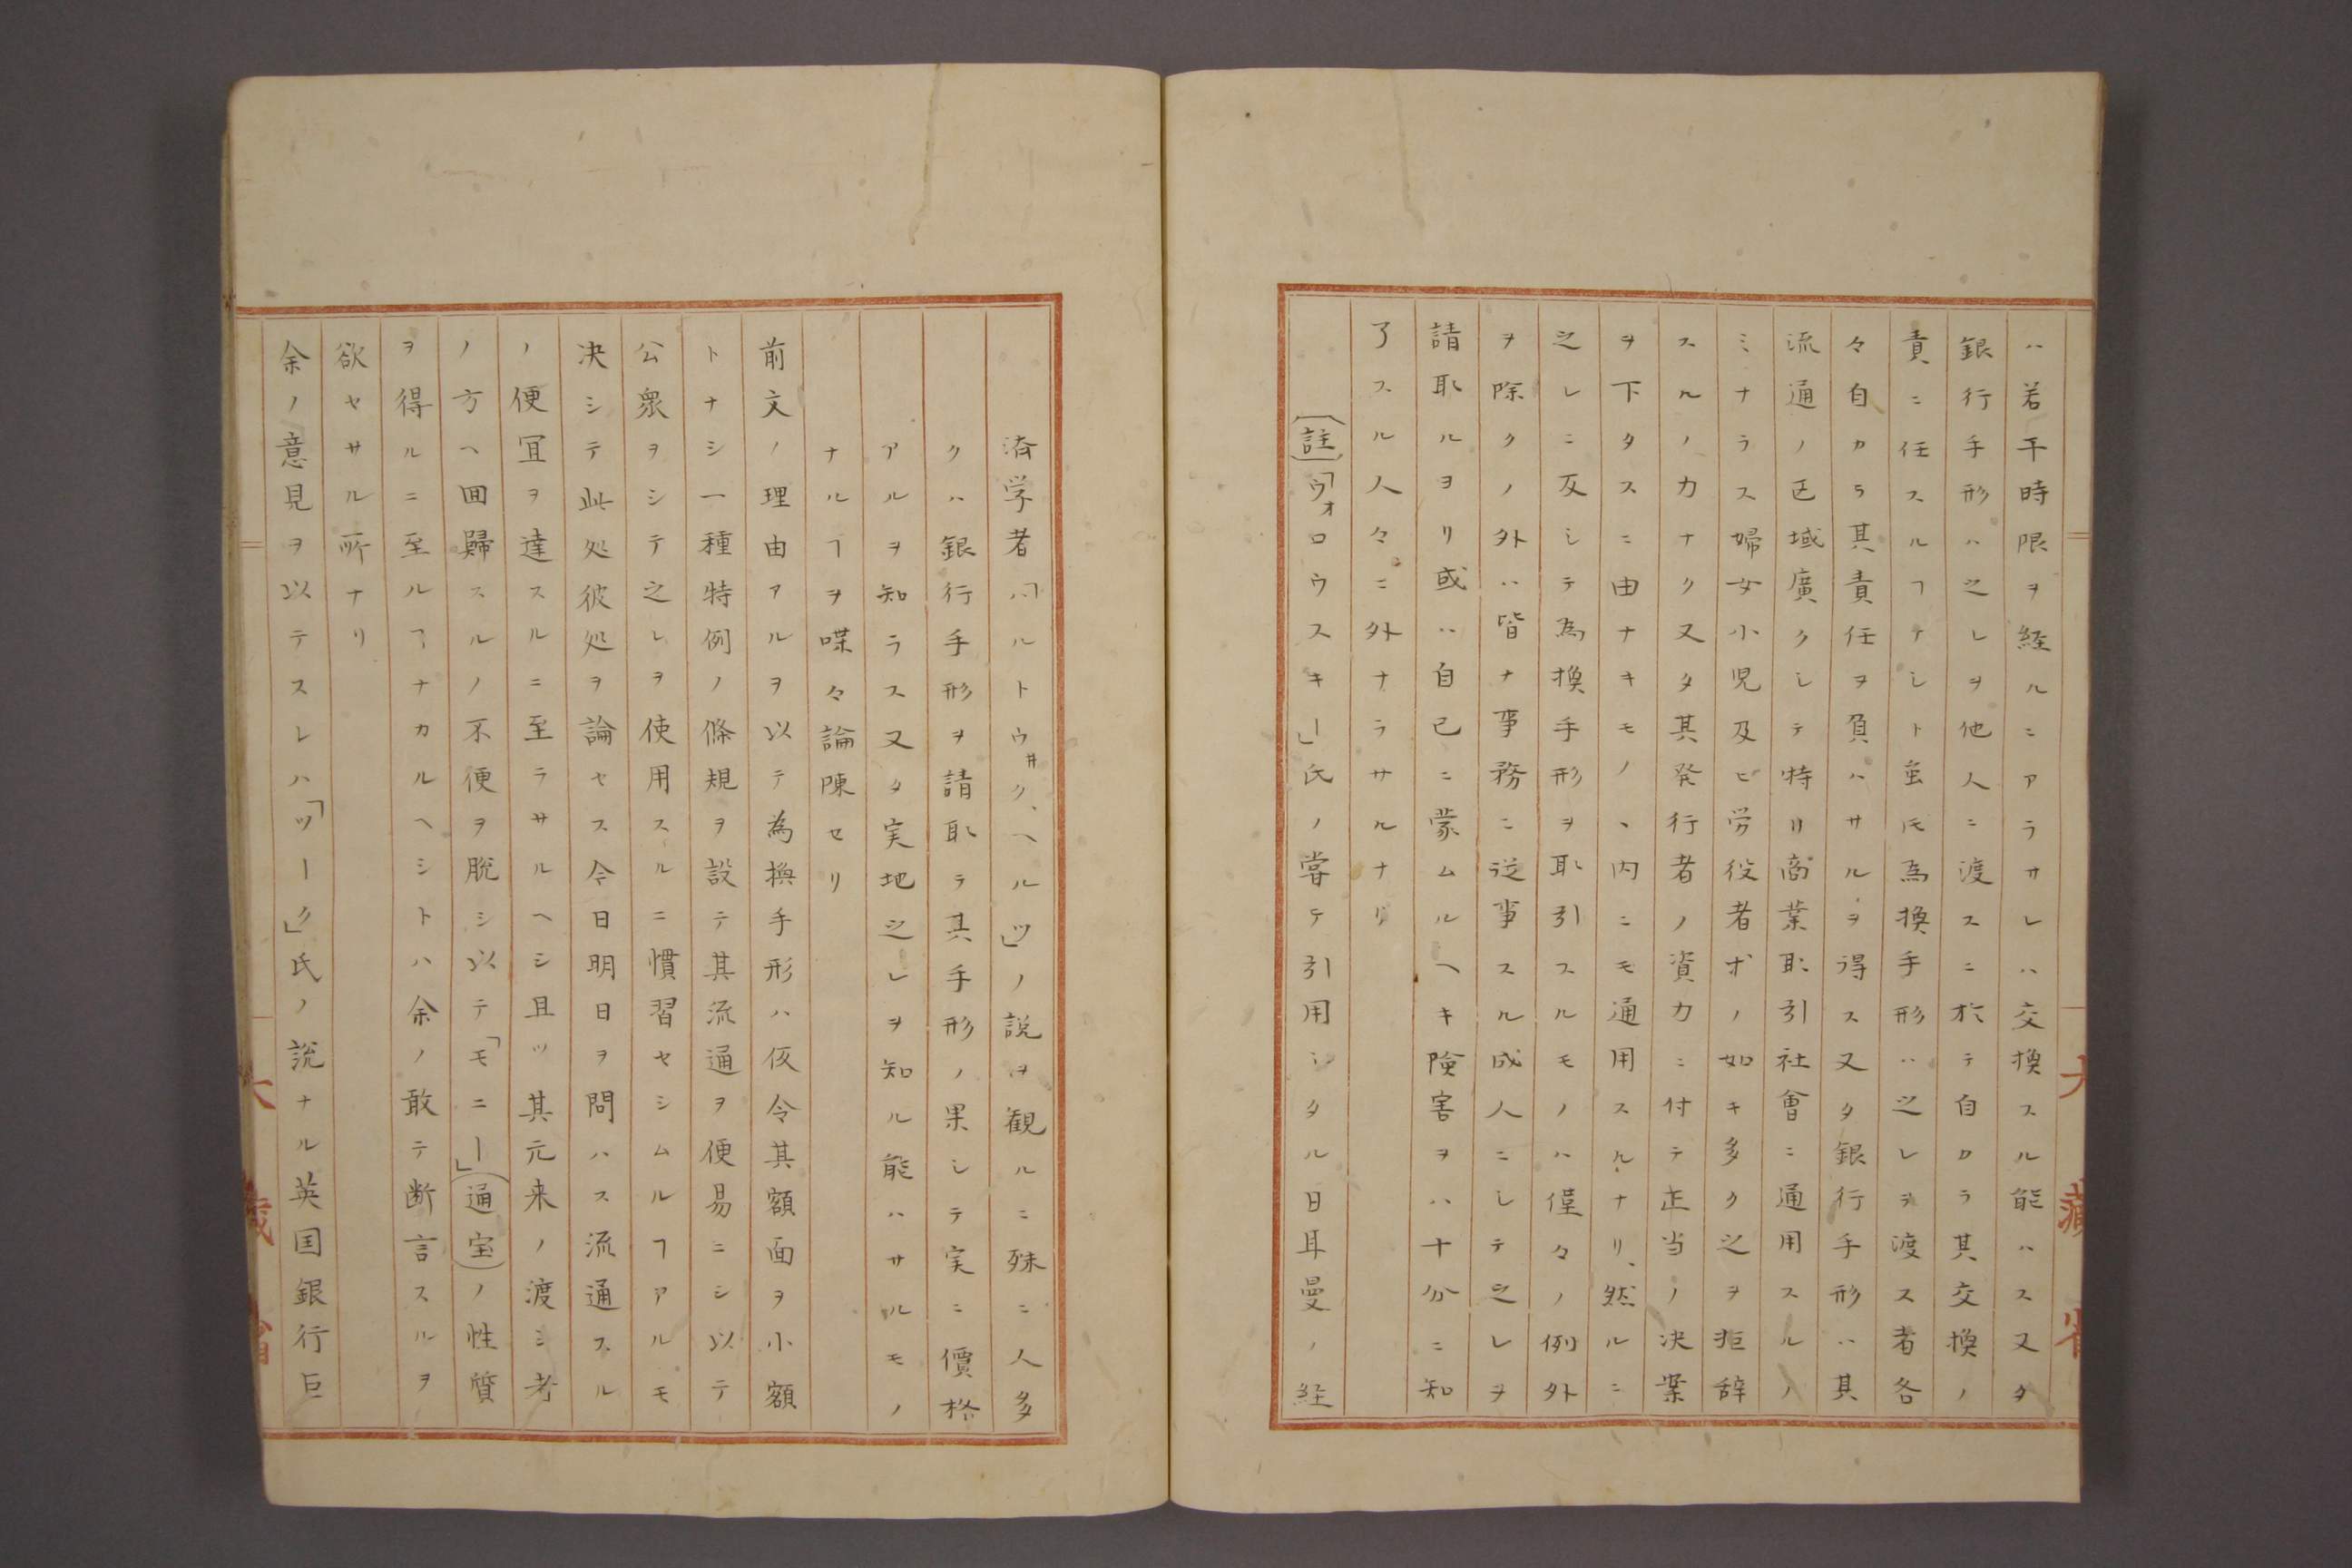 ハ若干時限ヲ経ルニアラサレハ交換スル能ハス又タ
銀行手形ハ之レヲ他人ニ渡スニ於テ自カラ其交換ノ
責ニ任スルヿナシト虽𪜈為換手形ハ之レヲ渡ス者各
々自カラ其責任ヲ負ハサルヲ得ス又タ銀行手形ハ其
流通ノ区域廣クシテ特リ商業取引社會ニ通用スルノ
ミナラス婦女小児及ヒ労役者木ノ如キ多ク之ヲ拒辞
スルノ力ナク又タ其発行者ノ資力ニ付テ正当ノ决案
ヲ下タスニ由ナキモノヽ内ニモ通用スルナリ、然ルニ
之レニ反シテ為換手形ヲ取引スルモノハ僅々ノ例外
ヲ除クノ外ハ皆ナ事務ニ従事スル成人ニシテ之レヲ
請取ルヲリ或ハ自己ニ蒙ムルヘキ険害ヲハ十分ニ知
了スル人々ニ外ナラサルナリ
(註)「ウォロウスキー」氏ノ嘗テ引用シタル日耳曼ノ経
済学者「ハルトウ井ク、ヘルツ」ノ説ヲ観ルニ殊ニ人多
クハ銀行手形ヲ請取ラ其手形ノ果シテ実ニ價格
アルヲ知ラス又タ実地之レヲ知ル能ハサルモノ
ナルヿヲ喋々論陳セリ
前文ノ理由アルヲ以テ為換手形ハ仮令其額面ヲ小額
トナシ一種特例ノ條規ヲ設テ其流通ヲ便易ニシ以テ
公衆ヲシテ之レヲ使用スルニ慣習セシムルヿアルモ
决シテ此処彼処ヲ論セス今日明日ヲ問ハス流通スル
ノ便冝ヲ達スルニ至ラサルヘシ且ツ其元来ノ渡シ者
ノ方ヘ囬歸スルノ不便ヲ脱シ以テ「モニー」(通宝)ノ性質
ヲ得ルニ至ルヿナカルヘシトハ余ノ敢テ断言スルヲ
欲セサル所ナリ
余ノ意見ヲ以テスレハ「ツーク」氏ノ説ナル英国銀行巨
大藏省